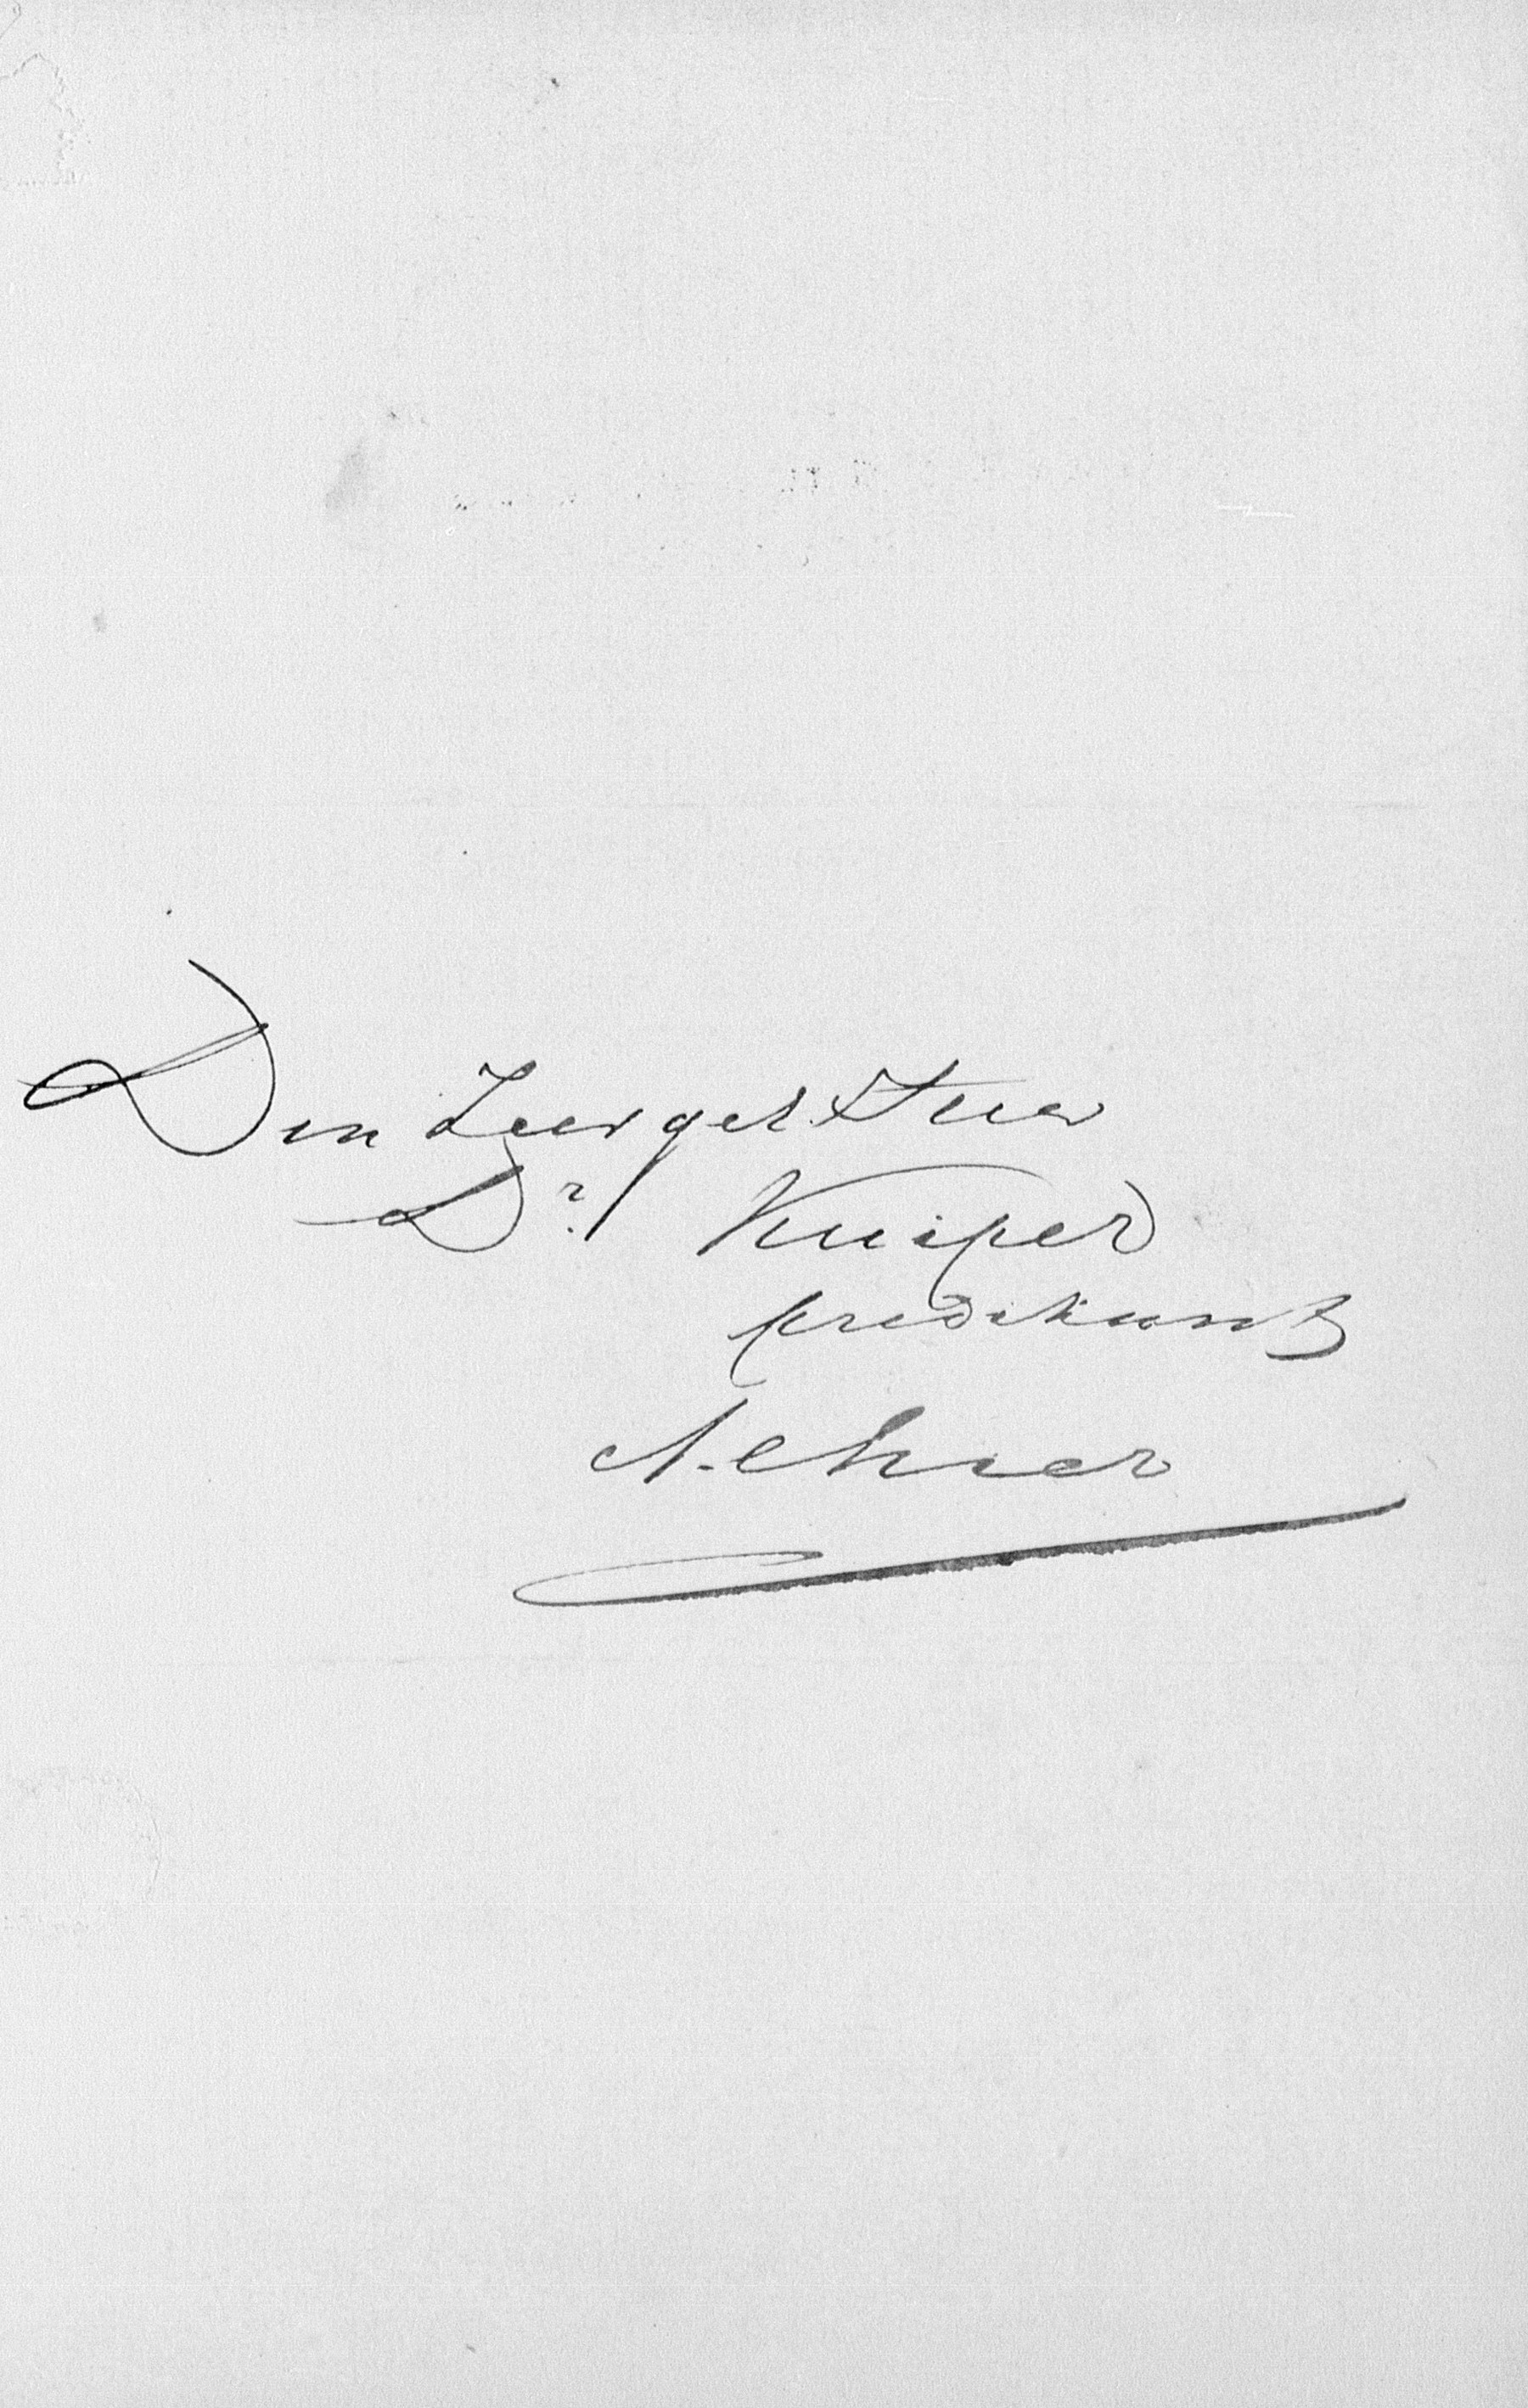 Den Zeergel. Heer
Dr. Kuiper
predikant
Alhier